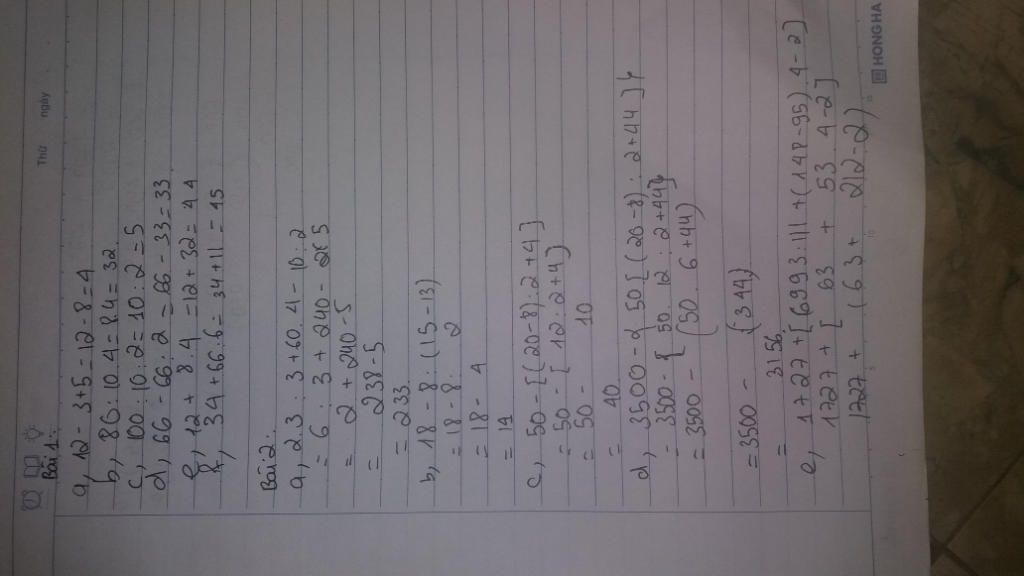 Thứ ngày
Bài 1:
a, 12 - 3+5 = 12 - 8 = 4
b, 86 : 10.4 = 8.4 = 32
c, 100 : 10 : 2 = 10 : 2 = 5
d, 66 - 66 : 2 = 66 - 33 = 33
e, 12 + 8.4 = 12 + 32 = 44
f, 34 + 66 : 6 = 34 + 11 = 45
Bài 2:
a, 2.3 : 3 + 60.4 - 10 : 2
= 6 : 3 + 240 - 5
= 2 + 240 - 5
= 238 - 5
= 233
b, 18 - 8 : (15 - 13)
= 18 - 8 : 2
= 18 - 4
= 14
c, 50 - [(20 - 8) : 2 + 4]
= 50 - [12 : 2 + 4]
= 50 - 10
= 40
d, 3500 - { 50 [(20 - 8) : 2 + 44]}
= 3500 - { 50. 12 : 2 + 44]
= 3500 - (50. 6 + 44)
= 3500 - (344)
= 3156
e, 1727 + [6993 : 111 + (148 - 95).4 - 2]
1727 + [ 63 + 53.4 - 2]
1727 + (63 + 212 - 2)
HONG HA